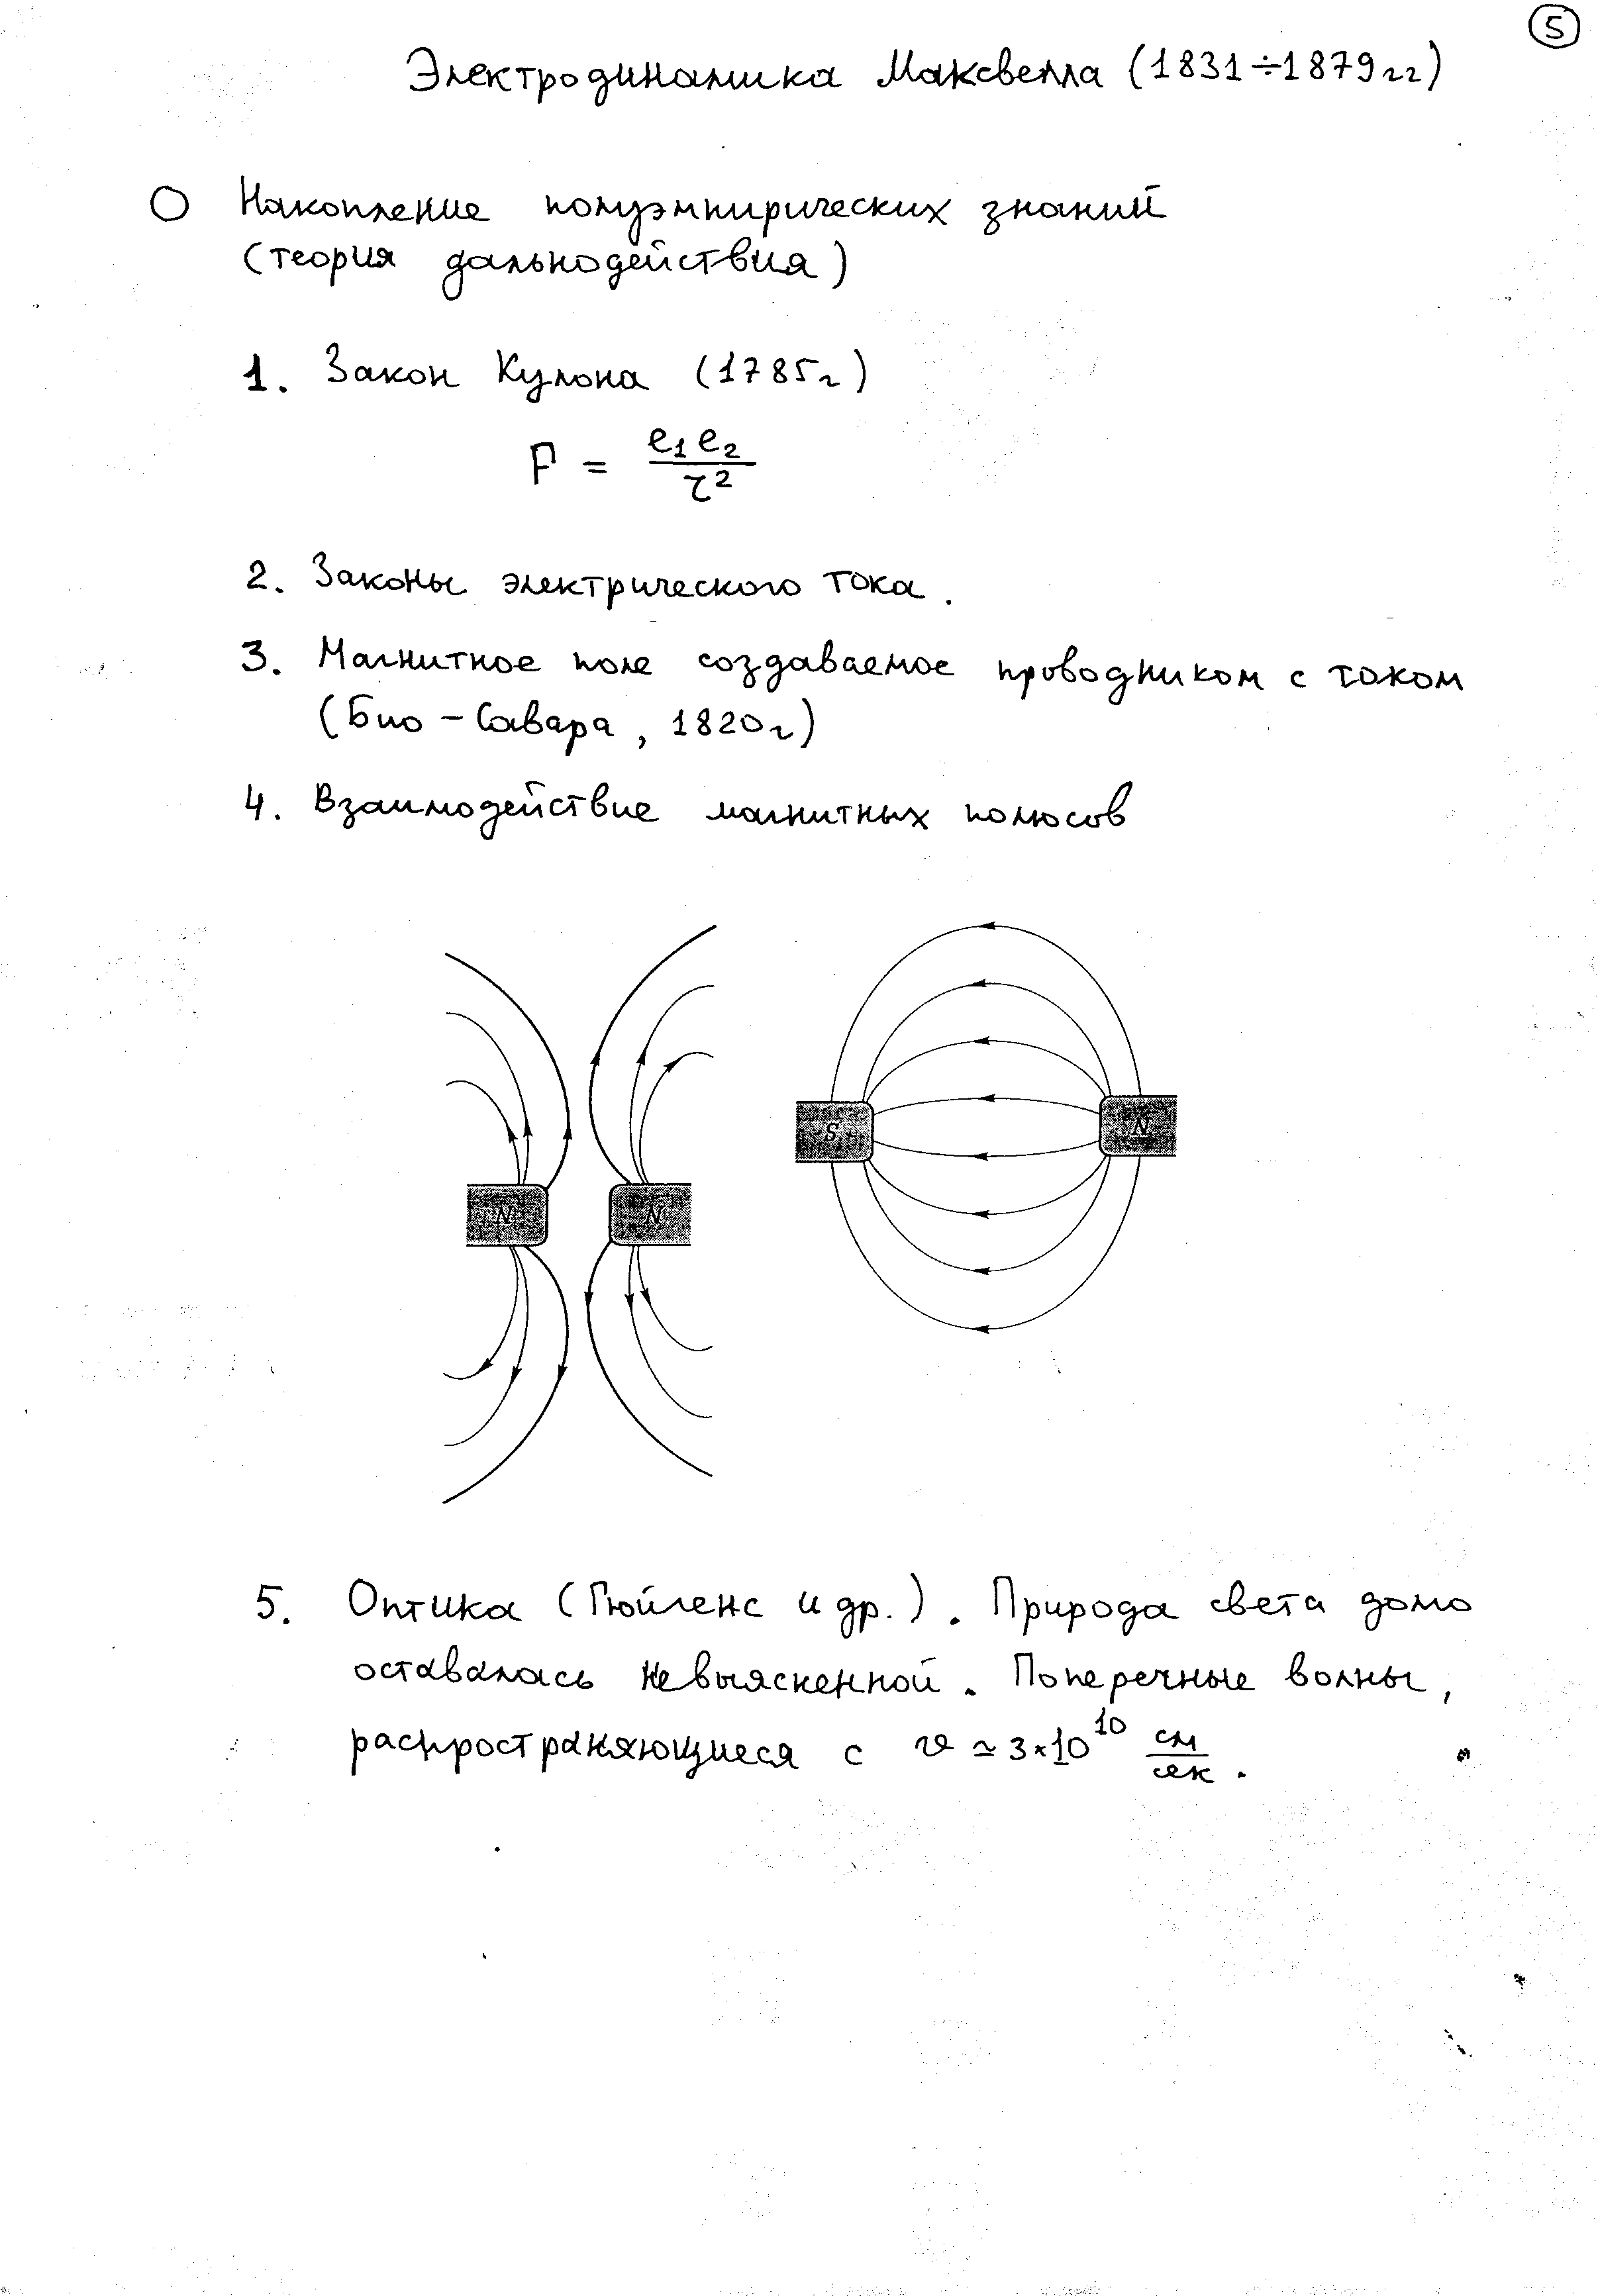 5
Электродинамика Максвелла (1831÷1879гг)
Накопление полуэмпирических знаний
(теория дальнодействия)
1. Закон Кулона (1785г)
F = e₁e₂ / r²
2. Законы электрического тока.
3. Магнитное поле создаваемое проводником с током
(Био – Савара, 1820г)
4. Взаимодействие магнитных полюсов
S N
N N
5. Оптика (Гюйгенс и др.). Природа света долго
оставалась невыясненной. Поперечные волны,
распространяющиеся с v ≃ 3×10¹⁰ см/сек.